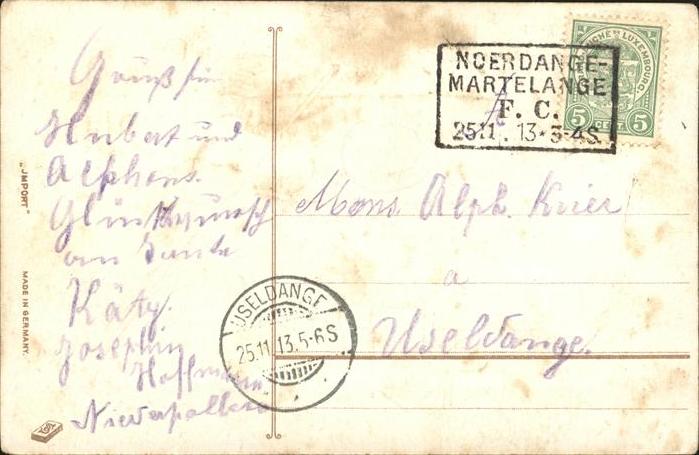 Gruß für
Hubert und
Alphons.
Glückwunsch
an Tante
Käty.
Josephin
Hoffmann
Niederpallen
"JMPORT"
MADE IN GERMANY.
NOERDANGE-
MARTELANGE
F. C.
25 11 . 13 • 3-4S.
LUXEMBOURG
5 CENT. 5
Mons. Alph. Krier
a
Useldange.
USELDANGE
25.11.13.5-6S